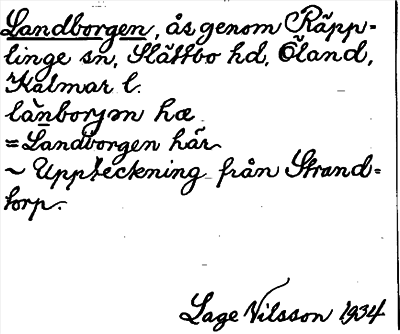 Landborgen, ås genom Räpp-
linge sn, Slättbo hd, Öland,
Kalmar l.
lànborjɘn hæ
= Landborgen här
~ Uppteckning från Strand=
torp.
Lage Nilsson 1934